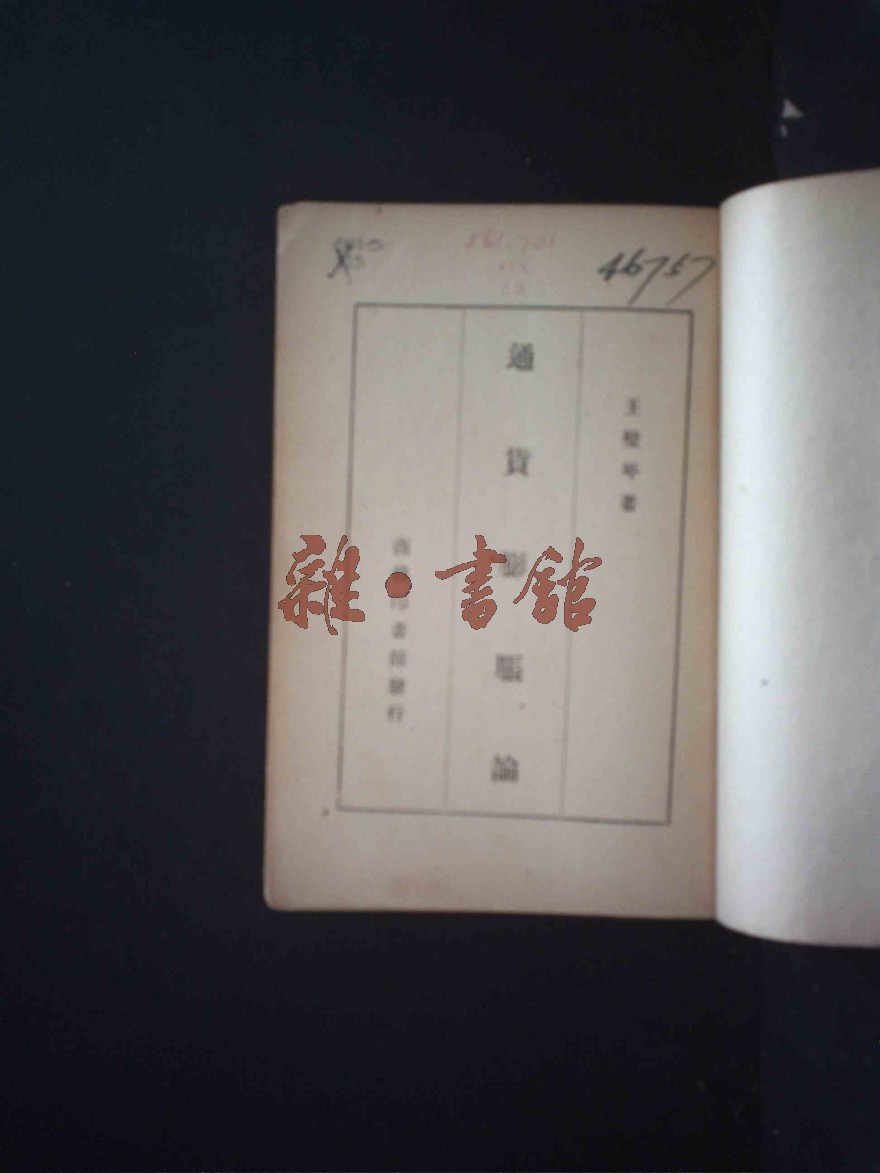 561.701
46757
王璧岑著
通貨膨脹論
商務印書館發行
雜·書館